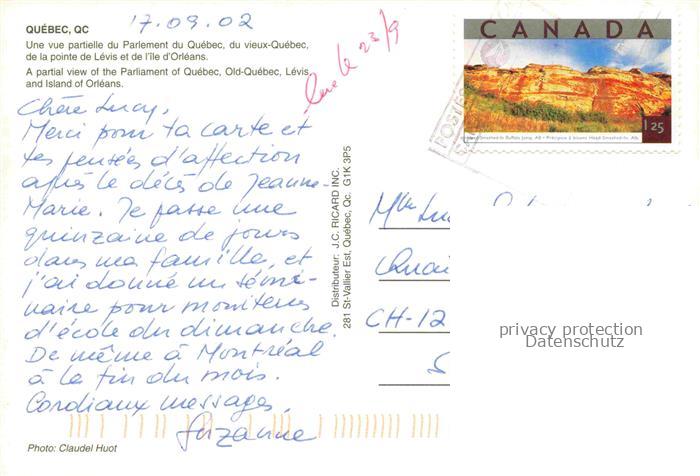 17.09.02
QUÉBEC, QC
Une vue partielle du Parlement du Québec, du vieux-Québec,
de la pointe de Lévis et de l'île d'Orléans.
A partial view of the Parliament of Québec, Old-Québec, Lévis
and Island of Orléans.
Chère Lucy,
Merci pour ta carte et
tes pensées d'affection
après le décès de Jeanne-
Marie. Je passe une
quinzaine de jours
dans ma famille, et
j'ai donné un sémi-
naire pour moniteurs
d'école du dimanche.
De même à Montréal
à la fin du mois.
Cordiaux messages,
Suzanne
Photo: Claudel Huot
le 23/9
Distributeur: J.C. RICARD INC.
281 St-Vallier Est, Québec, Qc. G1K 3P5
CANADA
125
Head-Smashed-In Buffalo Jump, AB • Précipice à bisons Head-Smashed-In, Alb.
POSTES
Mlle Lu
Quai
CH-12
S
privacy protection
Datenschutz